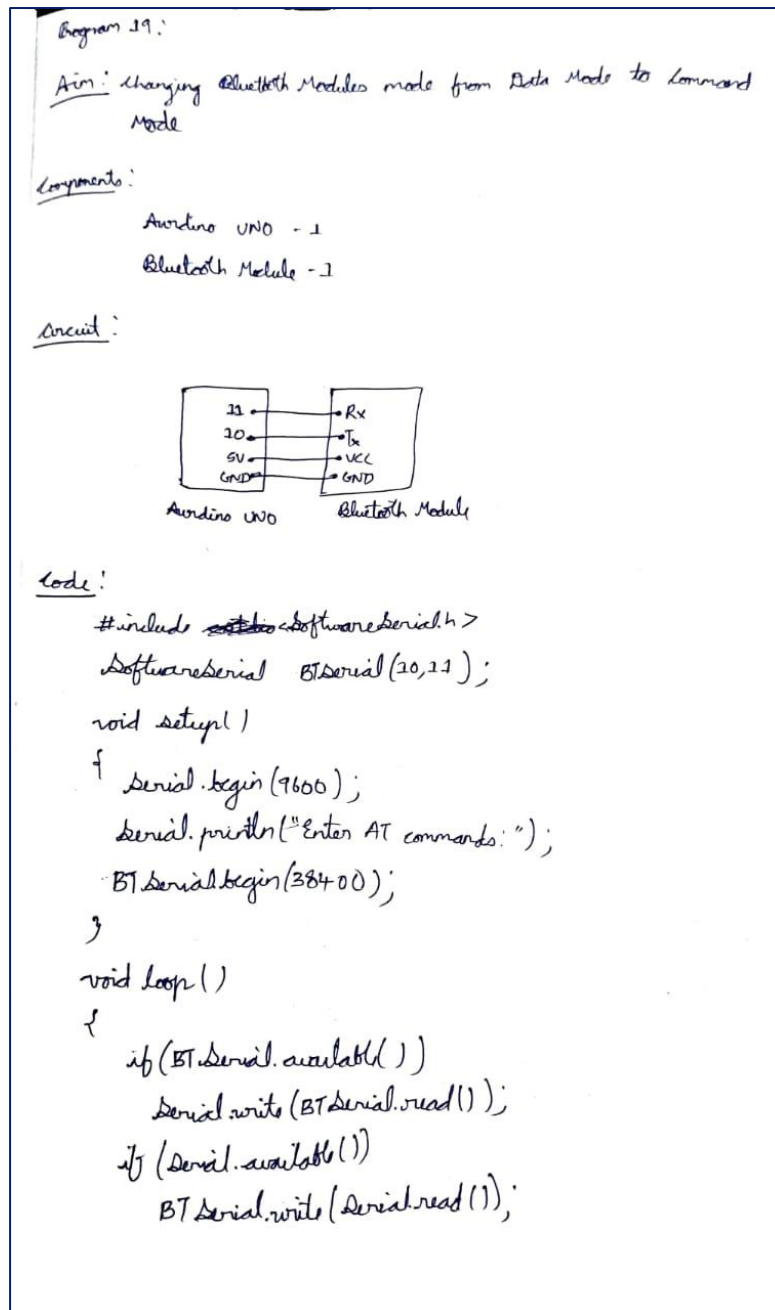 Program 19:
Aim: Changing Bluettoth Modules mode from Data Mode to Command
Mode
Components:
Aurdino UNO - 1
Bluetooth Module - 1
Circuit:
11 Rx
10 Tx
5V VCC
GND GND
Aurdino UNO Bluetooth Module
Code:
#include <SoftwareSerial.h>
SoftwareSerial BTSerial(10,11);
void setup()
{
Serial.begin(9600);
Serial.println("Enter AT commands:");
BTSerial.begin(38400);
}
void loop()
{
if(BTSerial.available())
Serial.write(BTSerial.read());
if(Serial.available())
BTSerial.write(Serial.read());